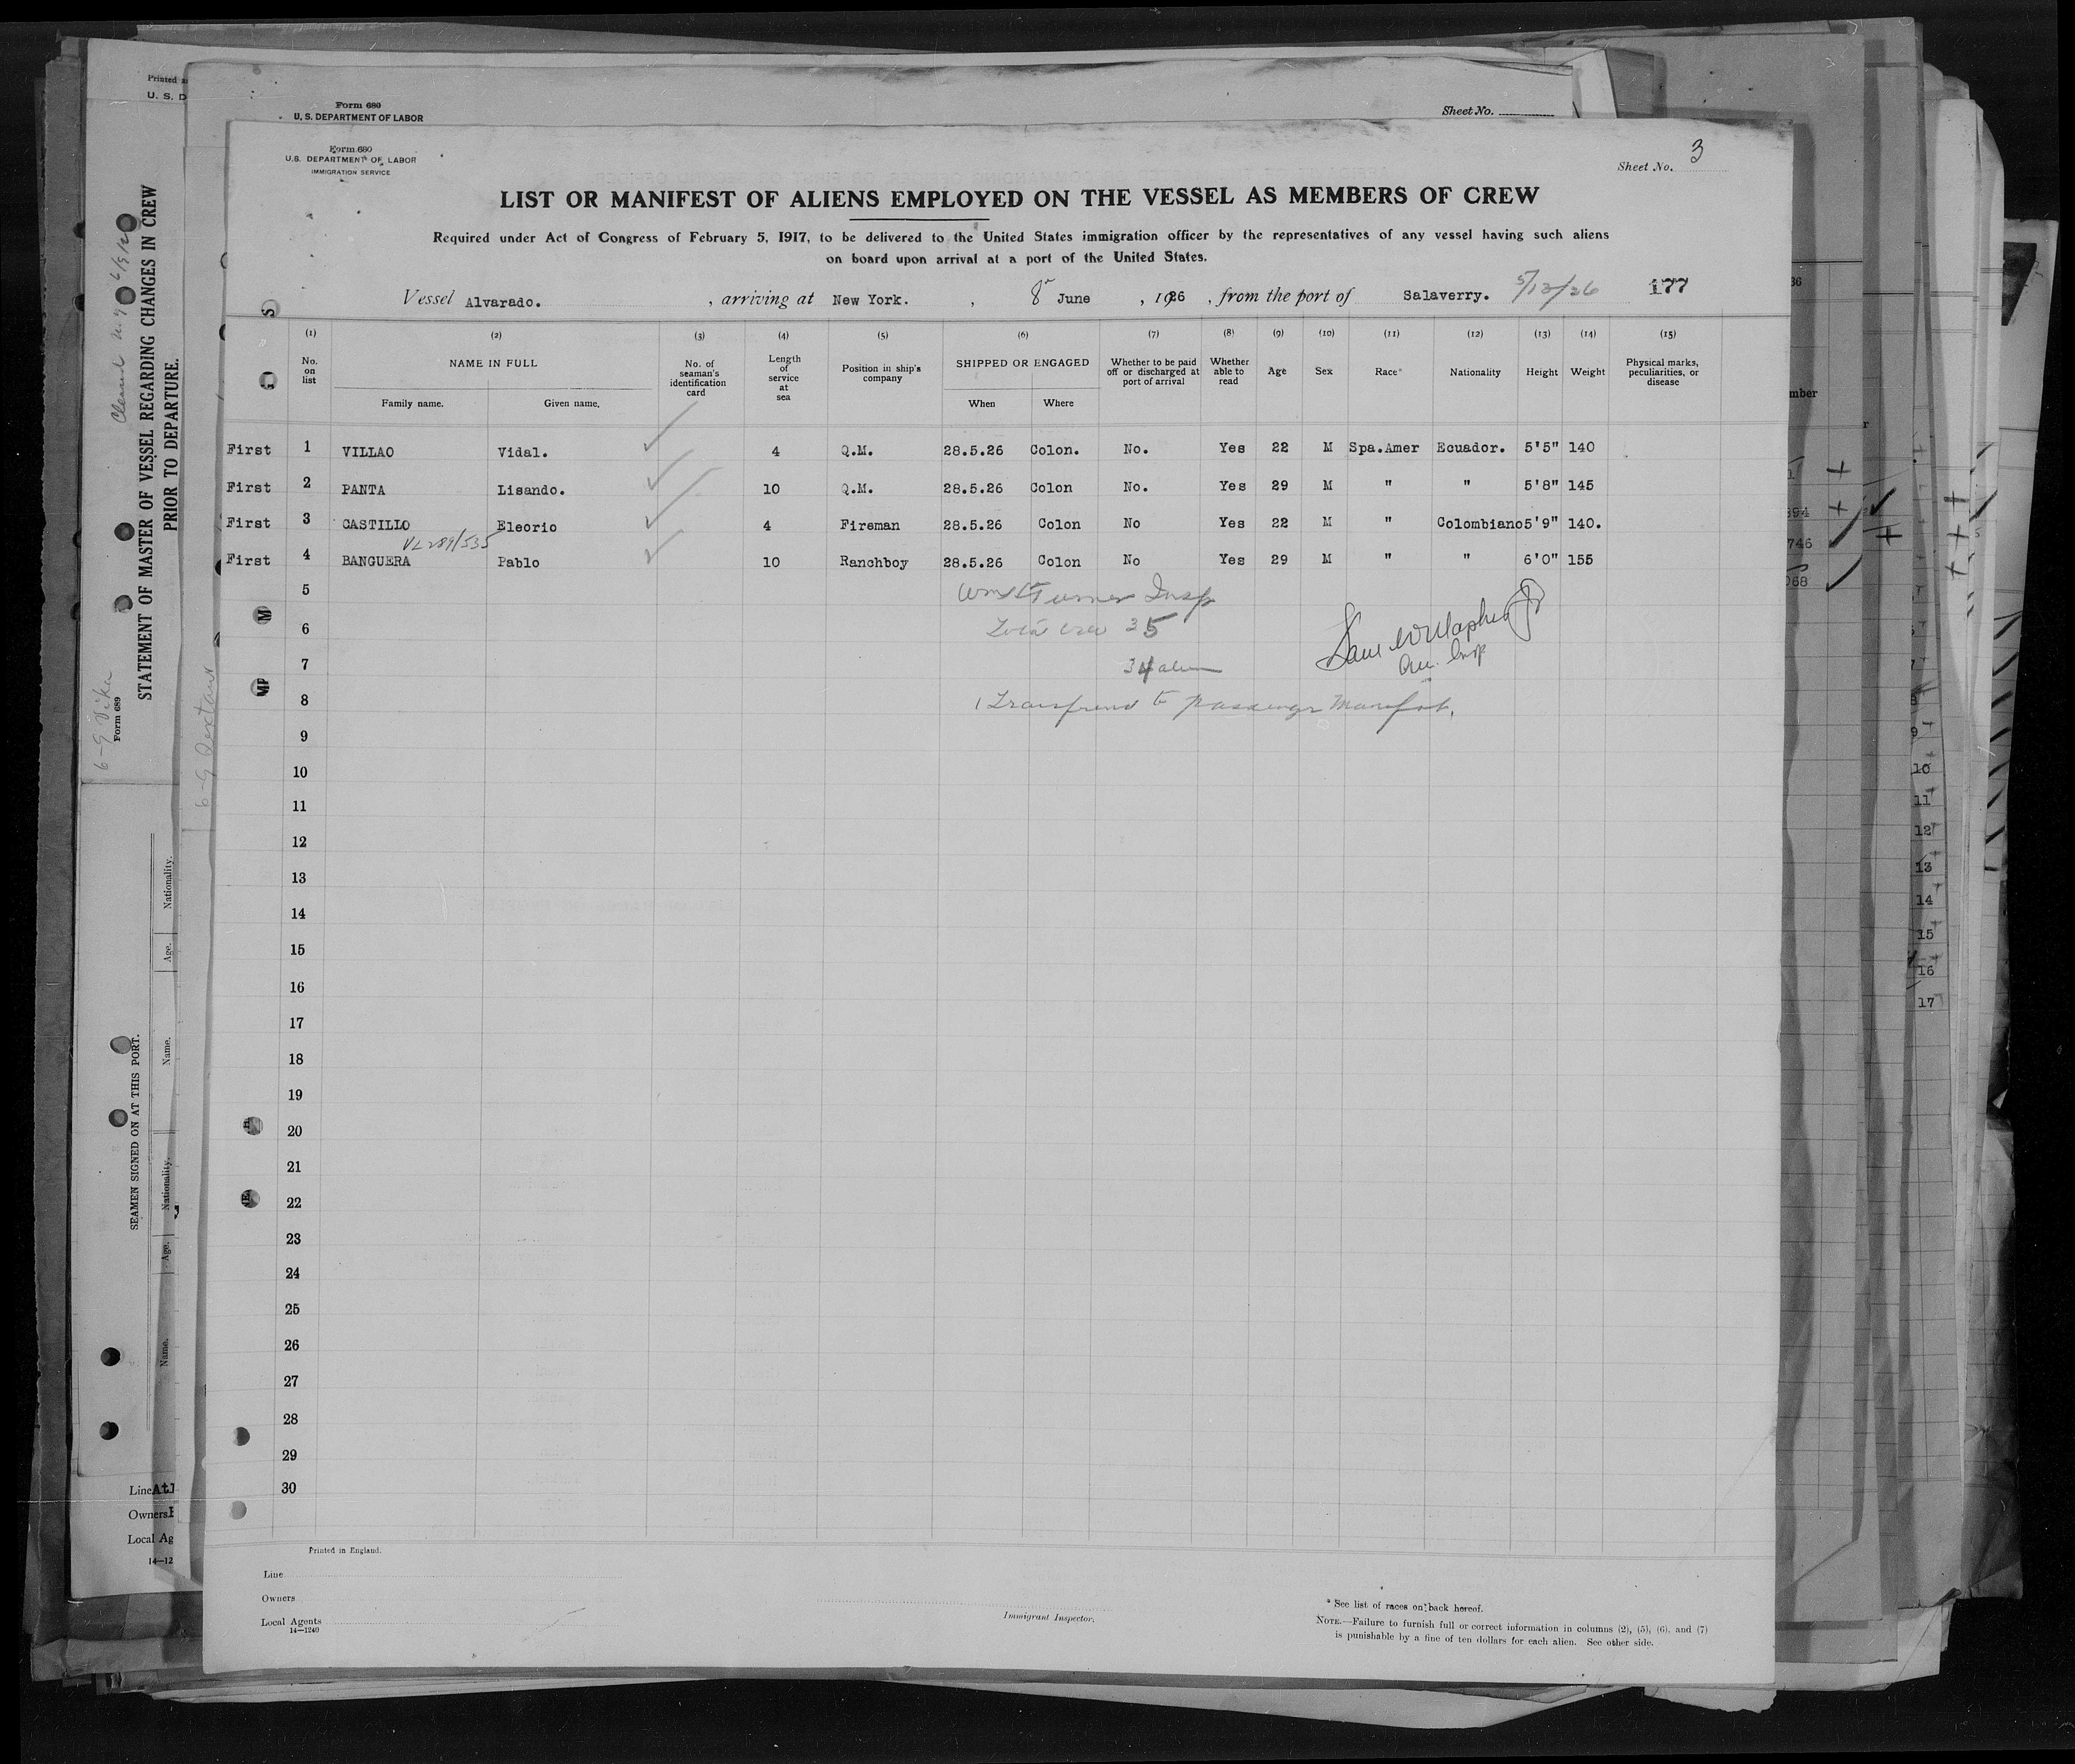 Printed
U. S. D
Form 680
U. S. DEPARTMENT OF LABOR
Sheet No.
Form 680
U.S. DEPARTMENT OF LABOR
IMMIGRATION SERVICE
Sheet No. 3
LIST OR MANIFEST OF ALIENS EMPLOYED ON THE VESSEL AS MEMBERS OF CREW
Required under Act of Congress of February 5, 1917, to be delivered to the United States immigration officer by the representatives of any vessel having such aliens
on board upon arrival at a port of the United States.
Vessel Alvarado. , arriving at New York. , 8 June , 1926 , from the port of Salaverry. 5/13/26 177
(1) (2) (3) (4) (5) (6) (7) (8) (9) (10) (11) (12) (13) (14) (15)
No. on list NAME IN FULL No. of seaman's identification card Length of service at sea Position in ship's company SHIPPED OR ENGAGED Whether to be paid off or discharged at port of arrival Whether able to read Age Sex Race* Nationality Height Weight Physical marks, peculiarities, or disease
Family name. Given name. When Where
First 1 VILLAO Vidal. 4 Q.M. 28.5.26 Colon. No. Yes 22 M Spa.Amer Ecuador. 5'5" 140
First 2 PANTA Lisando. 10 Q.M. 28.5.26 Colon No. Yes 29 M " " 5'8" 145
First 3 CASTILLO Eleorio 4 Fireman 28.5.26 Colon No Yes 22 M " Colombiano 5'9" 140.
VL 289/535
First 4 BANGUERA Pablo 10 Ranchboy 28.5.26 Colon No Yes 29 M " " 6'0" 155
5
Turner Insp
6
Total crew 35
7
34 alien
8
1 Transferred to Passenger Manifest.
9
10
11
12
13
14
15
16
17
18
19
20
21
22
23
24
25
26
27
28
29
30
Printed in England.
Line
Owners
Local Agents
14—1240
Immigrant Inspector.
* See list of races on back hereof.
NOTE.—Failure to furnish full or correct information in columns (2), (5), (6), and (7)
is punishable by a fine of ten dollars for each alien. See other side.
Form 689
STATEMENT OF MASTER OF VESSEL REGARDING CHANGES IN CREW
PRIOR TO DEPARTURE.
SEAMEN SIGNED ON AT THIS PORT.
Name. Age. Nationality. Name. Age. Nationality.
Line
Owners
Local Ag
14—12
mber
894
746
068
9
10
11
12
13
14
15
16
17